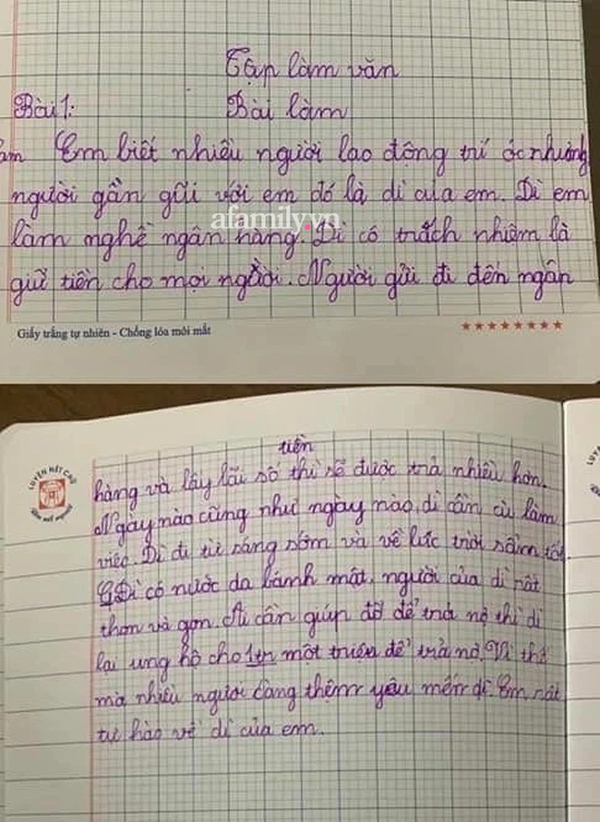 Tập làm văn
Bài 1: Bài làm
Em biết nhiều người lao động trí óc nhưng
người gần gũi với em đó là dì của em. Dì em
làm nghề ngân hàng. Dì có trách nhiệm là
giữ tiền cho mọi người. Người gửi đi đến ngân
afamily.vn
Giấy trắng tự nhiên - Chống lóa mỏi mắt
tiền
hàng và lấy lãi số thì sẽ được trả nhiều hơn.
Ngày nào cũng như ngày nào, dì cần cù làm
việc. Dì đi từ sáng sớm và về lúc trời sẩm tối.
Dì có nước da bánh mật, người của dì rất
thon và gọn. Ai cần giúp đỡ để trả nợ thì dì
lại ủng hộ cho 1tr một triệu để trả nợ. Vì thế
mà nhiều người càng thêm yêu mến dì. Em rất
tự hào về dì của em.
LUYỆN NÉT CHỮ